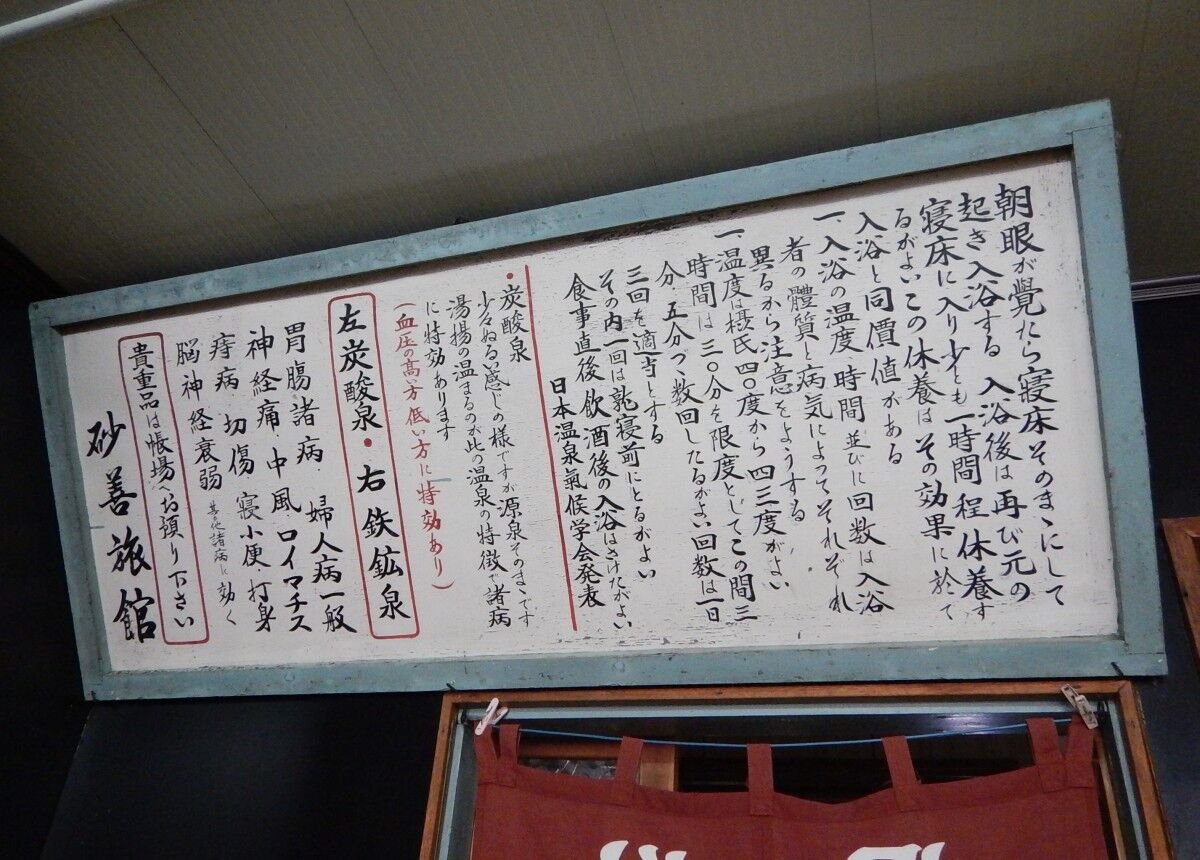 朝眼が覚たら寝床そのまゝにして
起き入浴する 入浴後は再び元の
寝床に入り少とも一時間程休養す
るがよいこの休養はその効果に於て
入浴と同價値がある
一、入浴の温度、時間並びに回数は入浴
者の體質と病気によってそれぞれ
異るから注意をようする
一、温度は摂氏四〇度から四三度がよい
時間は三〇分を限度としてこの間三
分、五分づゝ数回したるがよい回数は一日
三回を適当とする
その内一回は就寝前にとるがよい
食事直後飲酒後の入浴はさけたがよい
日本温泉氣候学会発表
・炭酸泉
少々ぬるい感じの様ですが源泉そのまゝです
湯揚の温まるのが此の温泉の特徴で諸病
に特効あります
(血圧の高い方低い方に特効あり)
左炭酸泉・右鉄鉱泉
胃腸諸病 婦人病一般
神経痛・中風・ロイマチス
痔病 切傷・寝小便・打身
脳神経衰弱 其の他諸病に効く
貴重品は帳場へお預り下さい
砂善旅館